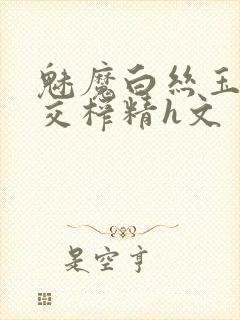 魅魔白丝玉
交榨精h文
是空亨